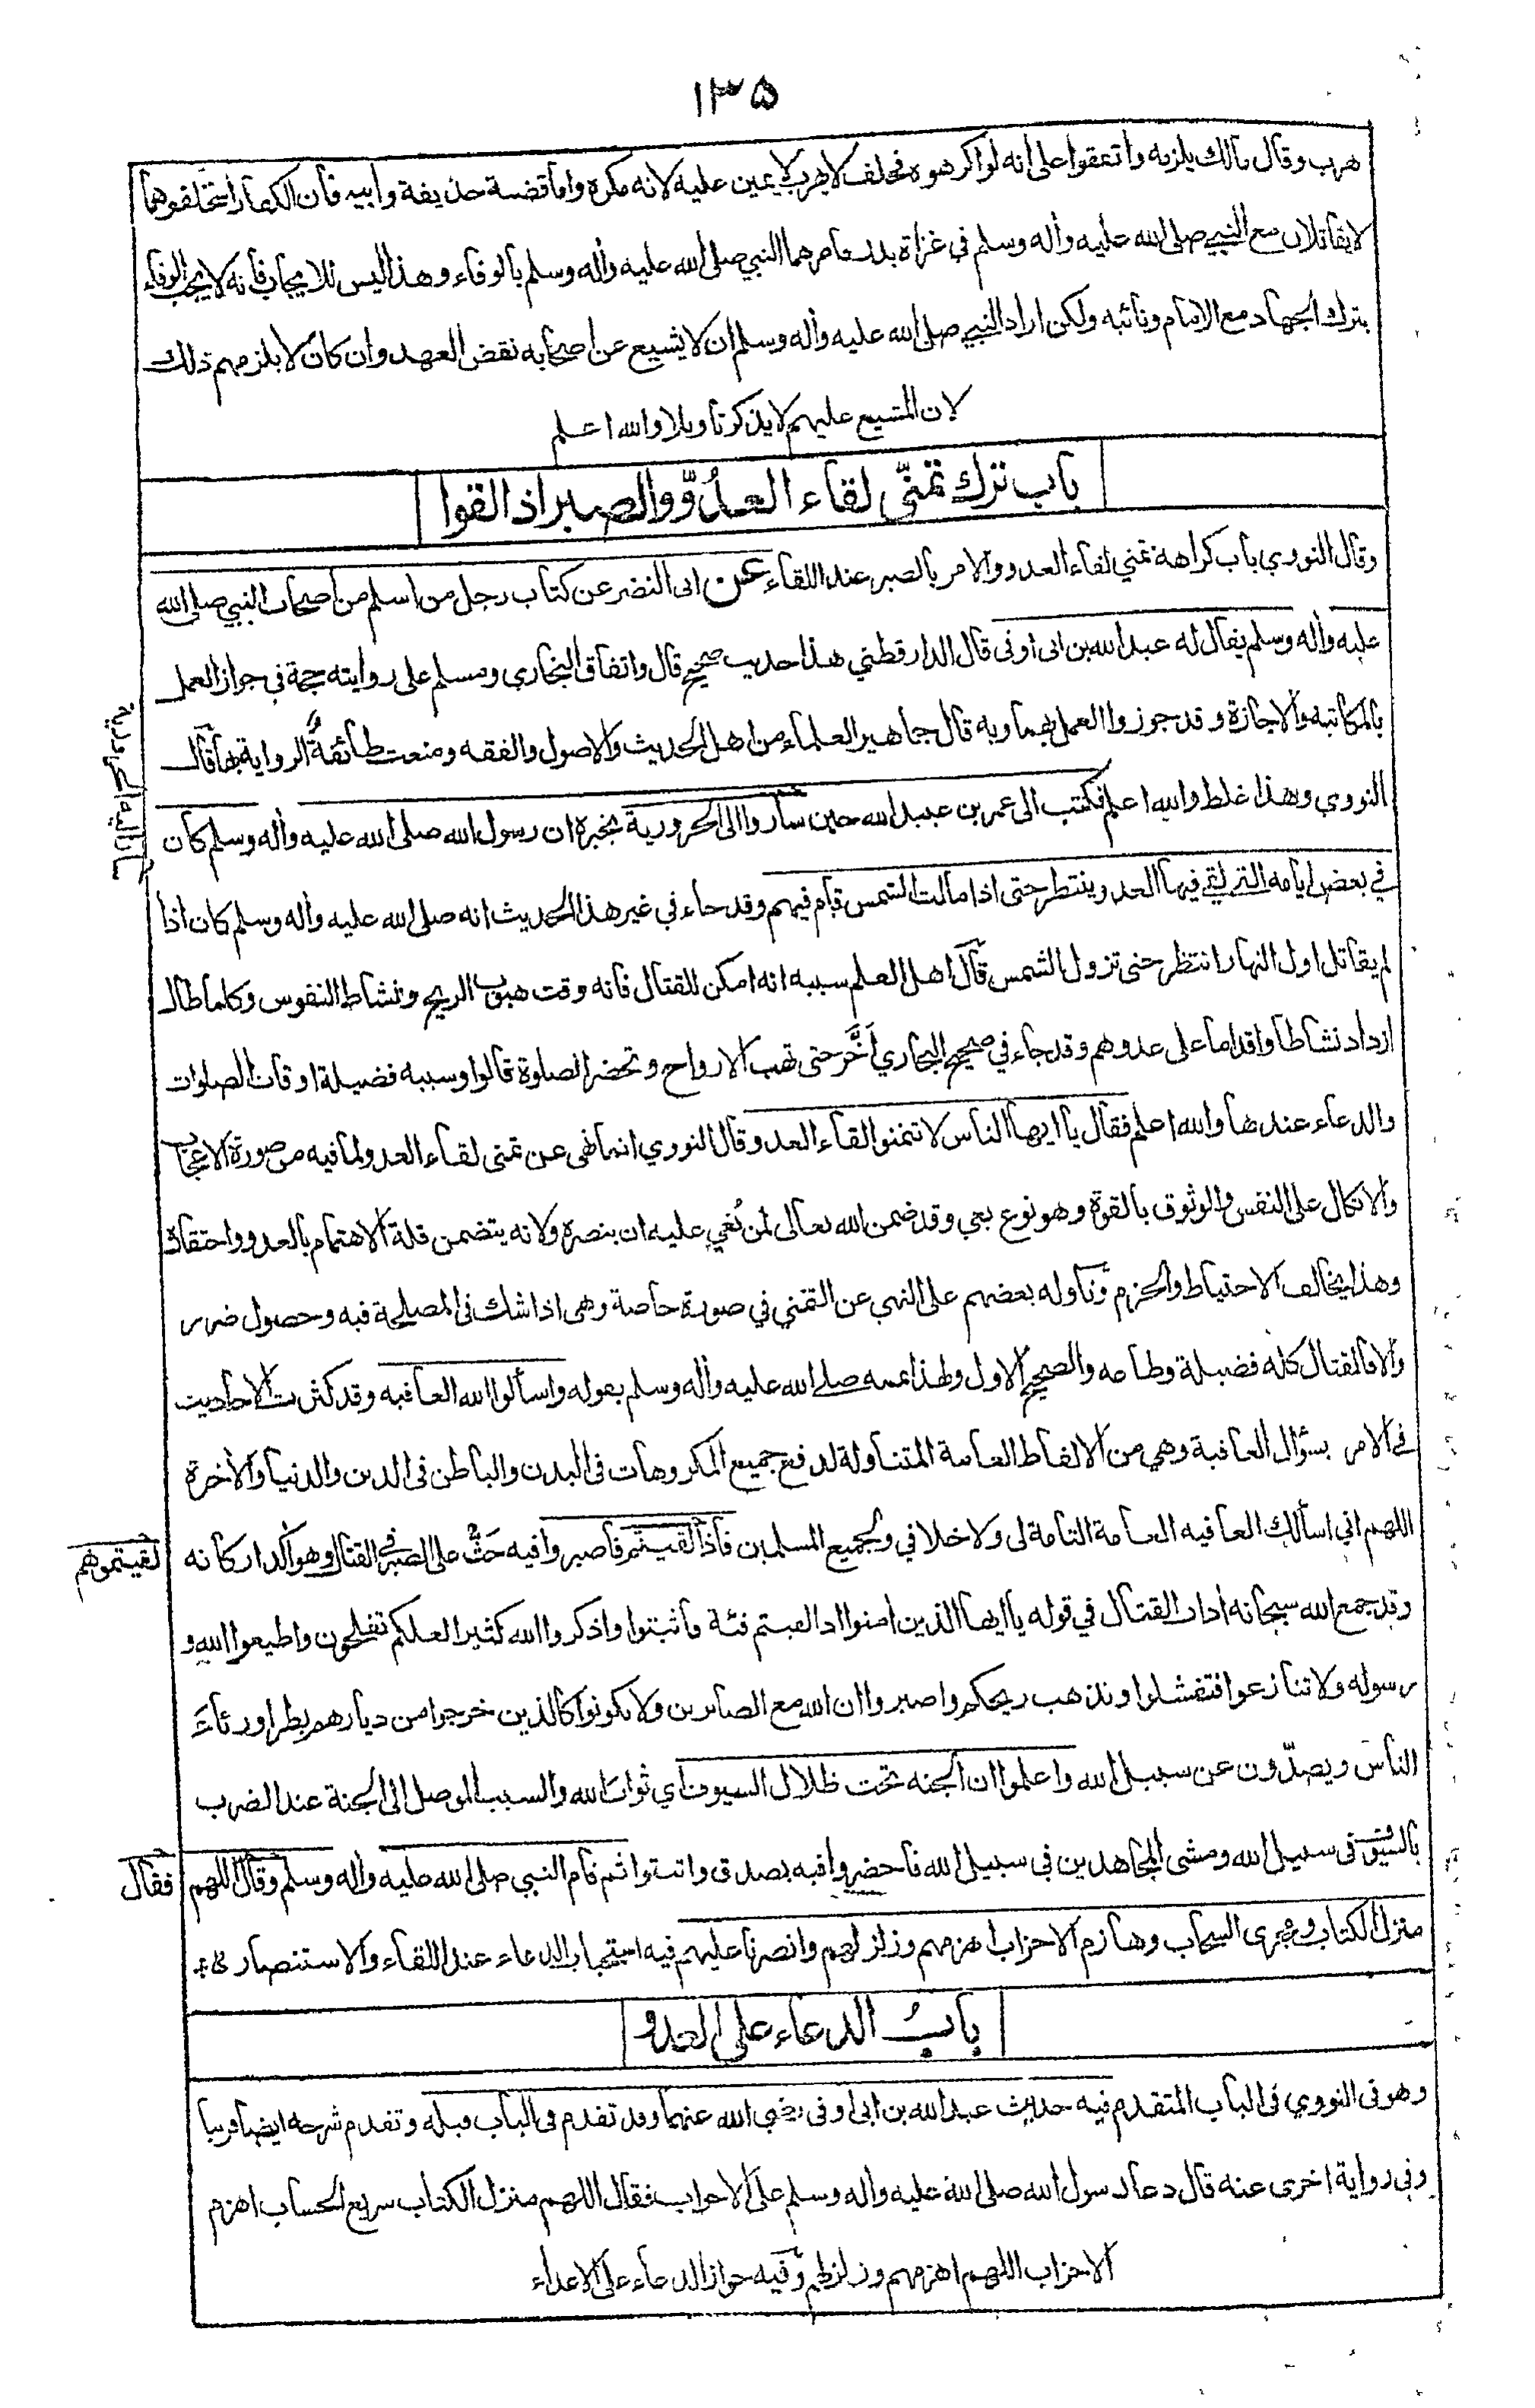 ١٣٥
هرب وقال مالك يلزمه واتفقوا على انه لو اكرهوه فحلف لا يهرب لا يمين عليه لانه مكره واما قضية حذيفة وابيه فان الكفار استحلفوهما
لا يقاتلان مع النبي صلى الله عليه وأله وسلم في غزاة بدر فامرهما النبي صلى الله عليه وأله وسلم بالوفاء وهذا ليس للايجاب فانه لا يجب الوفاء
بترك الجهاد مع الامام ونائبه ولكن اراد النبي صلى الله عليه وأله وسلم ان لا يشيع عن اصحابه نقض العهد وان كان لا يلزمهم ذلك
لان المشيع عليهم لا يذكر تأويلا والله اعلم
باب ترك تمنّي لقاء العدُوّ والصبر اذا لقوا
وقال النووي باب كراهة تمني لقاء العدو والامر بالصبر عند اللقاء عن ابى النضر عن كتاب رجل من اسلم من أصحاب النبي صلى الله
عليه وأله وسلم يقال له عبد الله بن ابى اوفى قال الدارقطني هذا حديث صحيح قال واتفاق البخاري ومسلم على روايته حجة في جواز العمل
بالمكاتبة والاجازة وقد جوزوا العمل بهما وبه قال جماهير العلماء من اهل الحديث والاصول والفقه ومنعت طائفةٌ الرواية بها قال
النووي وهذا غلط والله اعلم فكتب الى عمر بن عبيد الله حين سار والى الحرورية يخبره ان رسول الله صلى الله عليه وأله وسلم كان
سار اليه الحرورية
في بعض ايامه التي لقي فيها العدو ينتظر حتى اذا مالت الشمس قام فيهم وقد جاء في غير هذا الحديث انه صلى الله عليه وأله وسلم كان اذا
لم يقاتل اول النهار انتظر حتى تزول الشمس قال اهل العلم سببه انه امكن للقتال فانه وقت هبوب الريح ونشاط النفوس وكلما طال
ازداد نشاطا واقداما على عدوهم وقد جاء في صحيح البخاري أخَّر حتى تهب الارواح وتحضر الصلوة قالوا وسببه فضيلة اوقات الصلوات
والدعاء عندها والله اعلم فقال يا ايها الناس لا تتمنوا لقاء العدو قال النووي انما نهى عن تمنى لقاء العدو لما فيه من صورة الاعجاب
والاتكال على النفس والوثوق بالقوة وهو نوع بغي وقد ضمن الله تعالى لمن بُغي عليه ان ينصره ولانه يتضمن قلة الاهتمام بالعدو واحتقاره
وهذا يخالف الاحتياط والحزم وتأوله بعضهم على النهي عن التمني في صورة خاصة وهي اذا شك في المصلحة فيه وحصول ضرر
والا فالقتال كله فضيلة وطاعة والصحيح الاول ولهذا تممه صلى الله عليه وأله وسلم بقوله واسألوا الله العافية وقد كثرت الاحاديث
في الامر بسؤال العافية وهي من الالفاظ العامة المتناولة لدفع جميع المكروهات في البدن والباطن في الدين والدنيا والأخرة
اللهم اني اسألك العافية العامة التامة لى ولاخلافي ولجميع المسلمين فاذا لقيتم فاصبروا فيه حَثٌّ على الصبر في القتال وهو أكد اركانه
لقيتموهم
وقد جمع الله سبحانه أداب القتال في قوله يا ايها الذين امنوا اذا لقيتم فئة فاثبتوا واذكروا الله كثيرا لعلكم تفلحون واطيعوا الله و
رسوله ولا تنازعوا فتفشلوا وتذهب ريحكم واصبروا ان الله مع الصابرين ولا تكونوا كالذين خرجوا من ديارهم بطرا ورئاءَ
الناس ويصدّون عن سبيل الله واعلموا ان الجنة تحت ظلال السيوف اي ثواب الله والسبب الموصل الى الجنة عند الضرب
بالسيوف في سبيل الله ومشى المجاهدين في سبيل الله فاحضروا فيه بصدق واثبتوا ثم قام النبي صلى الله عليه وأله وسلم وقال اللهم
فقال
منزل الكتاب ومجرى السحاب وهازم الاحزاب اهزمهم وزلزلهم وانصرنا عليهم فيه استحباب الدعاء عند اللقاء والاستنصار
بابُ الدعاء على العدو
وهو في النووي في الباب المتقدم فيه حديث عبد الله بن ابى اوفى رضي الله عنهما وقد تقدم في الباب قبله وتقدم شرحه ايضا قريبا
وفي رواية اخرى عنه قال دعا رسول الله صلى الله عليه وأله وسلم على الاحزاب فقال اللهم منزل الكتاب سريع الحساب اهزم
الاحزاب اللهم اهزمهم وزلزلهم وفيه جواز الدعاء على الاعداء